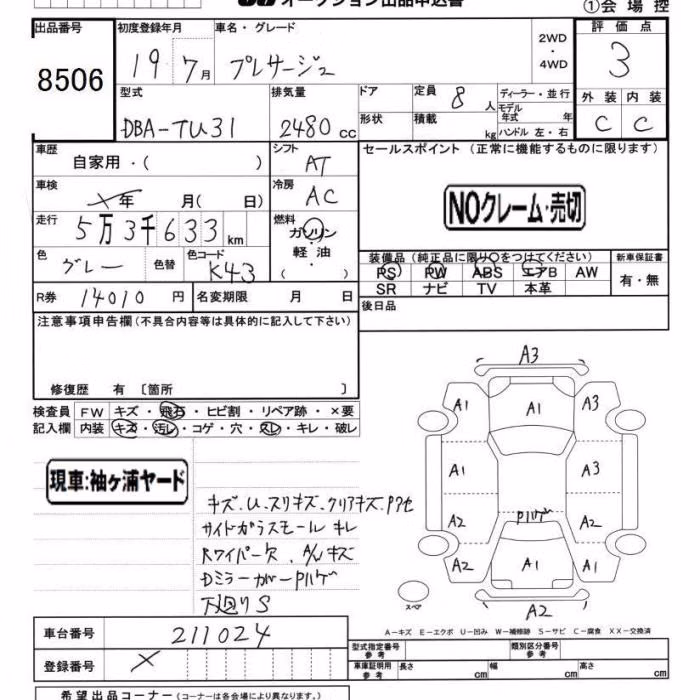 オークション出品申込書
①会場控
出品番号
8506
初度登録年月
19 7月
車名・グレード
プレサージュ
2WD
・
4WD
評価点
3
型式
DBA-TU31
排気量
2480 cc
ドア
形状
定員 8 人
積載 kg
ディーラー・並行
モデル年式 年
ハンドル 左・右
外装 内装
C C
車歴
自家用・( )
シフト
AT
セールスポイント (正常に機能するものに限ります)
NOクレーム・売切
車検
年 月( 日)
冷房
AC
走行
5万3千633 km
燃料
ガソリン
・
軽油
・
( )
色
グレー
色替
色コード
K43
装備品 (純正品に限り○をつけてください)
PS PW ABS エアB AW
SR ナビ TV 本革
新車保証書
有・無
R券 14010 円
名変期限 月 日
後日品
注意事項申告欄 (不具合内容等は具体的に記入して下さい)
修復歴 有 〔箇所 〕
検査員記入欄
FW キズ・飛石・ヒビ割・リペア跡・×要
内装 キズ・汚レ・コゲ・穴・スレ・キレ・破レ
現車:袖ヶ浦ヤード
キズ.U.スリキズ.クリアキズ.Pアセ
サイドガラスモール キレ
Rワイパー欠 . A/Wキズ
DミラーカバーPハゲ
下廻りS
A3
A1 A1 A3
A1 A3
A2 Pハゲ A2
A2 A1 A1
A2
スペア
A-キズ E-エクボ U-凹み W-補修跡 S-サビ C-腐食 XX-交換済
車台番号 211024
登録番号 ×
型式指定番号
参考
類別区分番号
参考
車庫証明用
参考
長さ cm 幅 cm 高さ cm
希望出品コーナー (コーナーは各会場により異なります。)